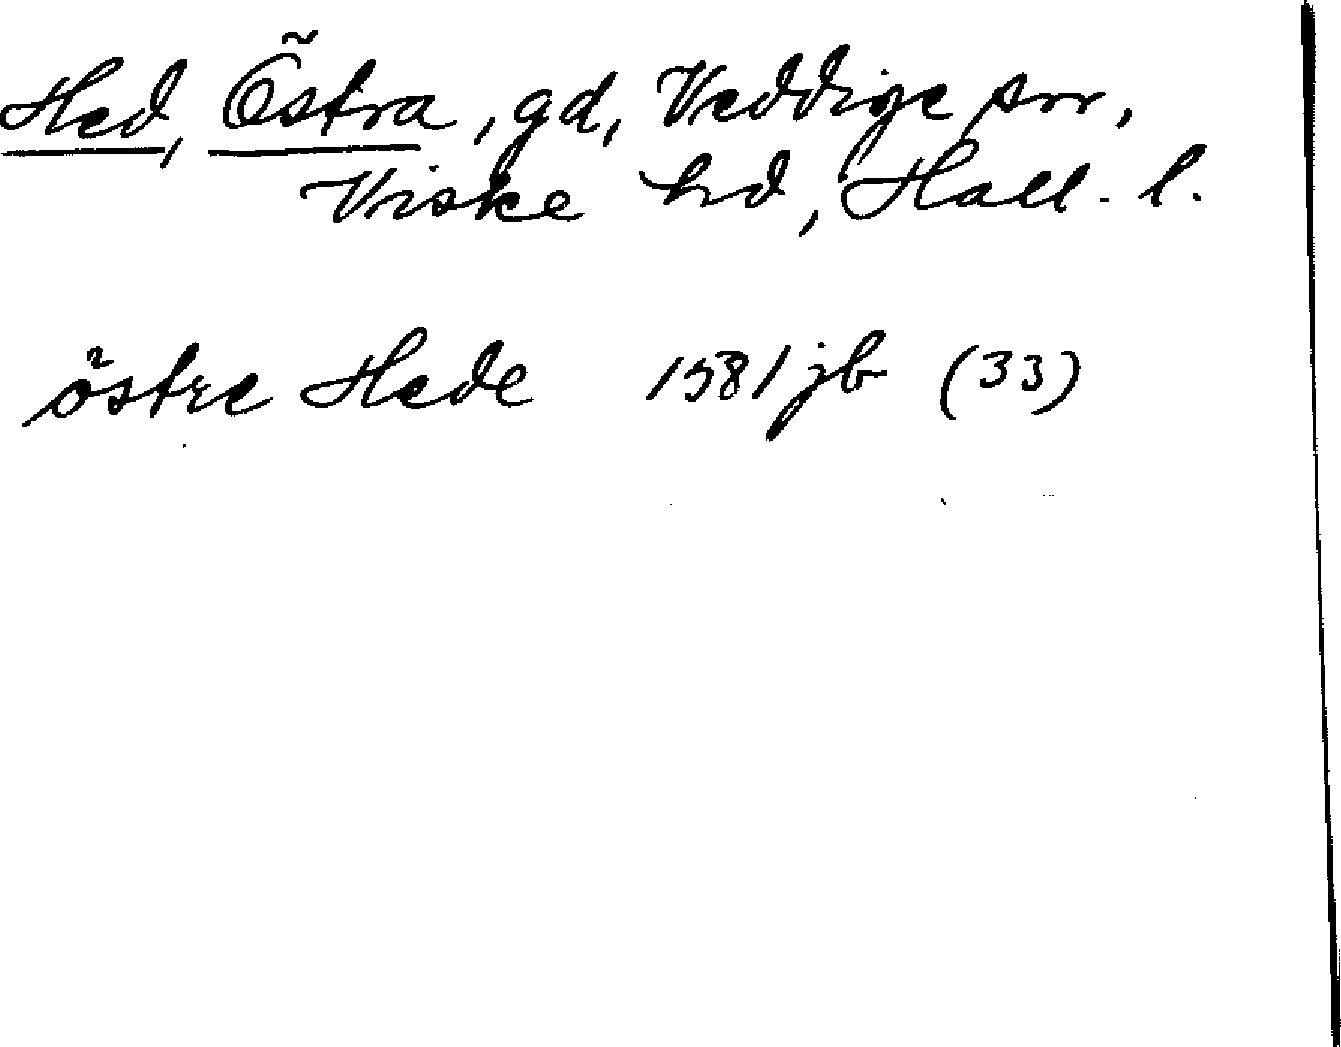 Hed, Östra, gd, Veddige sn,
Viske hd, Hall. l.
östre Hede 1581 jb (33)